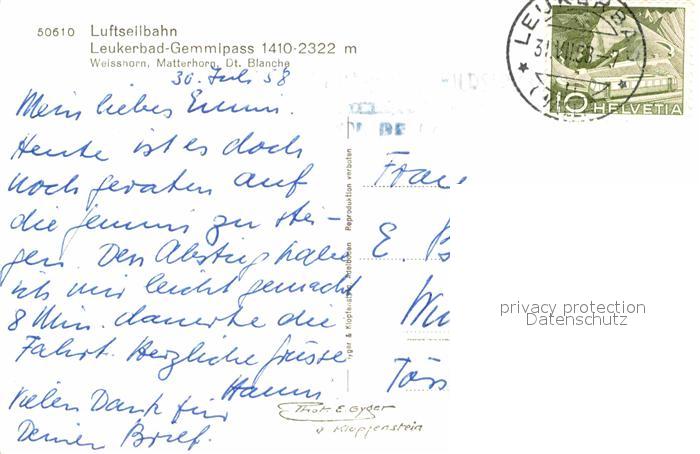 50610 Luftseilbahn
Leukerbad-Gemmipass 1410-2322 m
Weisshorn, Matterhorn, Dt. Blanche
30. Juli 58
Mein liebes Emmi.
Heute ist es doch
noch geraten auf
die Gemmi zu stei-
gen. Den Abstieg habe
ich mir leicht gemacht
8 Min. dauerte die
Fahrt. Herzliche Grüsse
Hanni
Vielen Dank für
Deinen Brief.
Reproduktion verboten
Gyger & Klopfenstein Adelboden
LEUKERBAD
10 HELVETIA
Frau
E. B
Wu
Töss
privacy protection
Datenschutz
Phot. E. Gyger
+ Klopfenstein